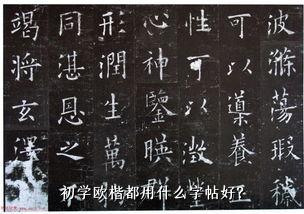 波滌蕩瑕穢
可以導養
性可以澂瑩
心神鑒暎群
形潤生萬
同湛恩之
竭將玄澤
初学欧楷都用什么字帖好?